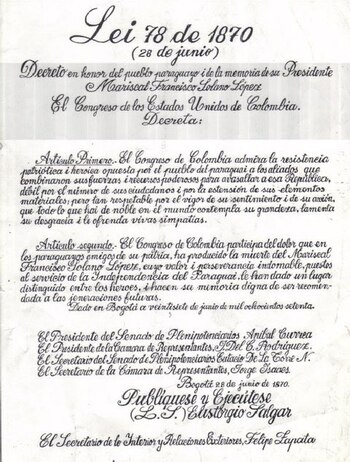 Lei 78 de 1870
(28 de junio)
Decreto en honor del pueblo paraguayo i de la memoria de su Presidente
Mariscal Francisco Solano López
El Congreso de los Estados Unidos de Colombia.
Decreta:
Artículo Primero. El Congreso de Colombia admira la resistencia
patriótica i heroica opuesta por el pueblo del paraguai a los aliados que
combinaron sus fuerzas i recursos poderosos para avasallar a esa República,
débil por el número de sus ciudadanos i por la extensión de sus elementos
materiales; pero tan respetable por el vigor de su sentimiento i de su acción,
que todo lo que hai de noble en el mundo contempla su grandeza, lamenta
su desgracia i le ofrenda vivas simpatías.
Artículo segundo. El Congreso de Colombia participa del dolor que en
los paraguayos amigos de su patria, ha producido la muerte del Mariscal
Francisco Solano López, cuyo valor i perseverancia indomable, puestos
al servicio de la Independencia del Paraguai, le han dado un lugar
distinguido entre los héroes, i hacen su memoria digna de ser recomen-
dada a las jeneraciones futuras.
Dado en Bogotá a veintisiete de junio de mil ochocientos setenta.
El Presidente del Senado de Plenipotenciarios Aníbal Currea
El Presidente de la Camara de Representantes, Del C. Rodríguez.
El Secretario del Senado de Plenipotenciarios Eustacio De La Torre N.
El Secretario de la Cámara de Representantes, Jorge Isaacs.
Bogotá 28 de junio de 1870.
Publíquese y Ejecútese
(L.S.) Eustorgio Salgar
El Secretario de lo Interior y Relaciones Exteriores, Felipe Zapata